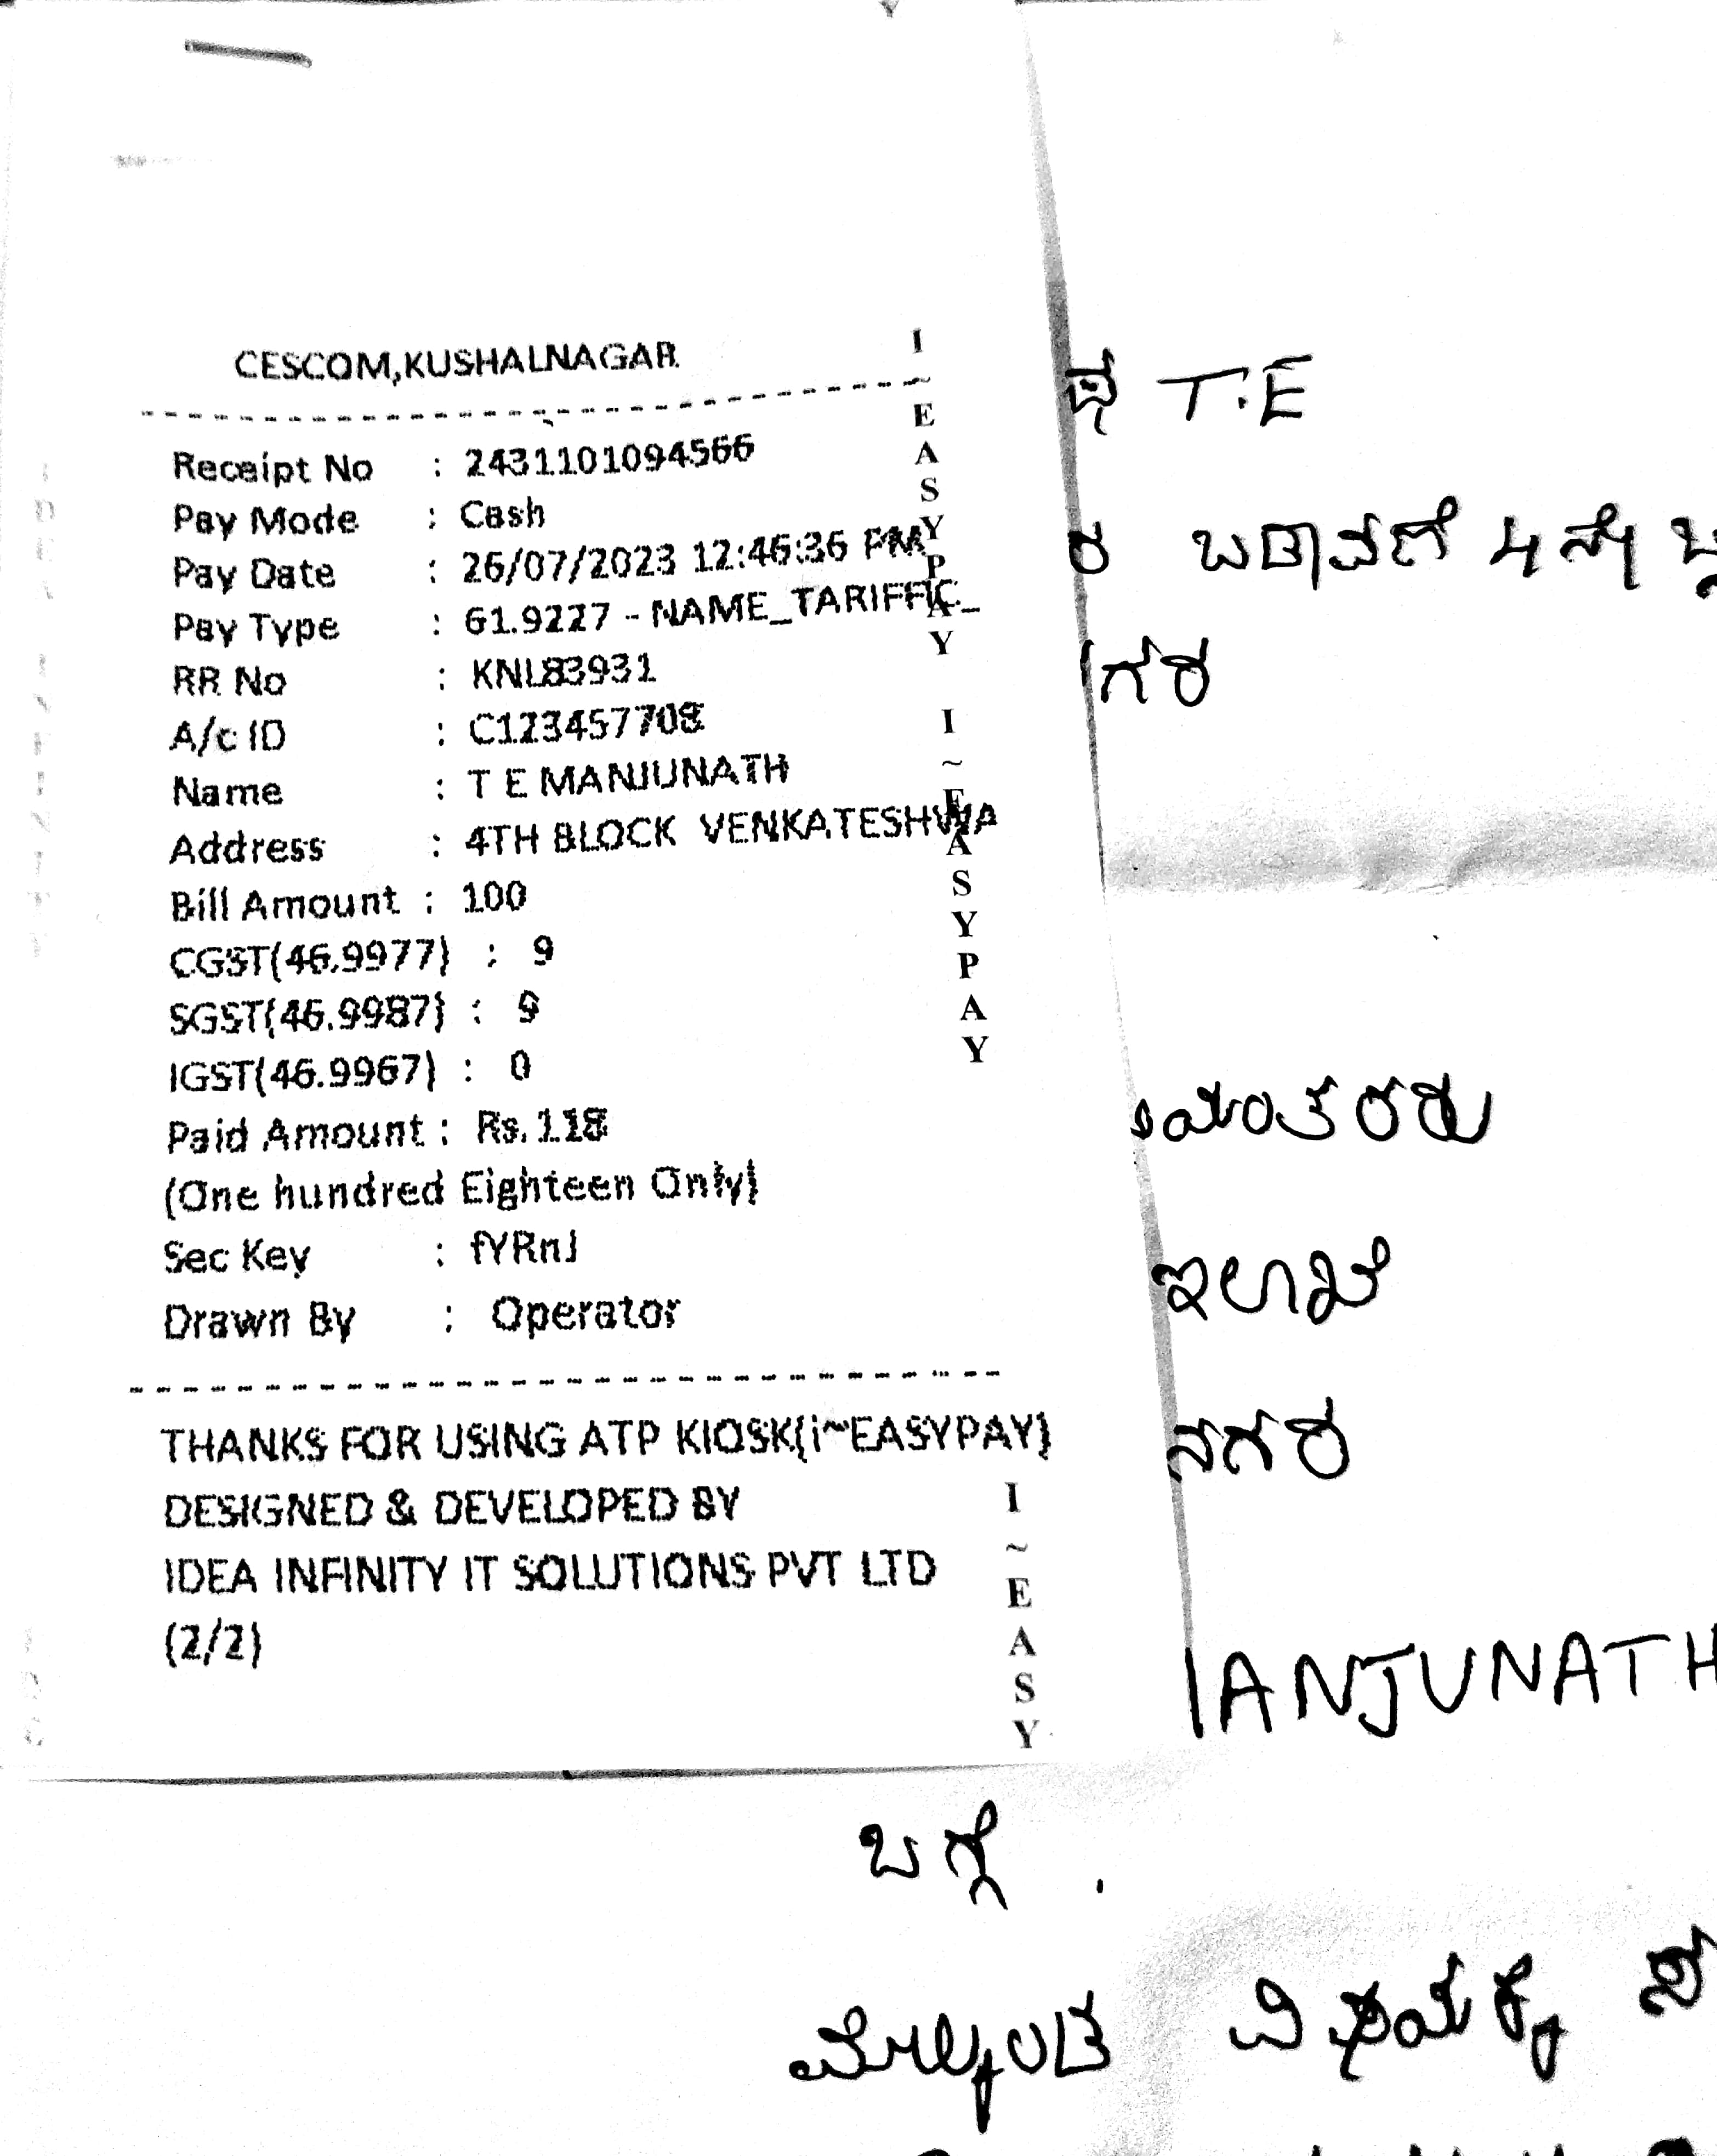 CESCOM,KUSHALNAGAR
Receipt No : 2431101094566
Pay Mode : Cash
Pay Date : 26/07/2023 12:46:36 PM
Pay Type : 61.9227 - NAME_TARIFFIC_
RR No : KNL83931
A/c ID : C123457708
Name : T E MANJUNATH
Address : 4TH BLOCK VENKATESHWA
Bill Amount : 100
CGST(46.9977) : 9
SGST(46.9987) : 9
IGST(46.9967) : 0
Paid Amount : Rs.118
(One hundred Eighteen Only)
Sec Key : fYRnJ
Drawn By : Operator
THANKS FOR USING ATP KIOSK(i~EASYPAY)
DESIGNED & DEVELOPED BY
IDEA INFINITY IT SOLUTIONS PVT LTD
(2/2)
I~EASYPAY I~EASYPAY
I~EASY
T.E
ರ ಬಡಾವಣೆ 4ನೇ
ಗರ
ಯಂತರರು
ಇಲಾಖೆ
ನಗರ
ANJUNATH
ಬಗ್ಗೆ .
ಮೇಲ್ಕಂಡ ವಿಷಯಕ್ಕೆ